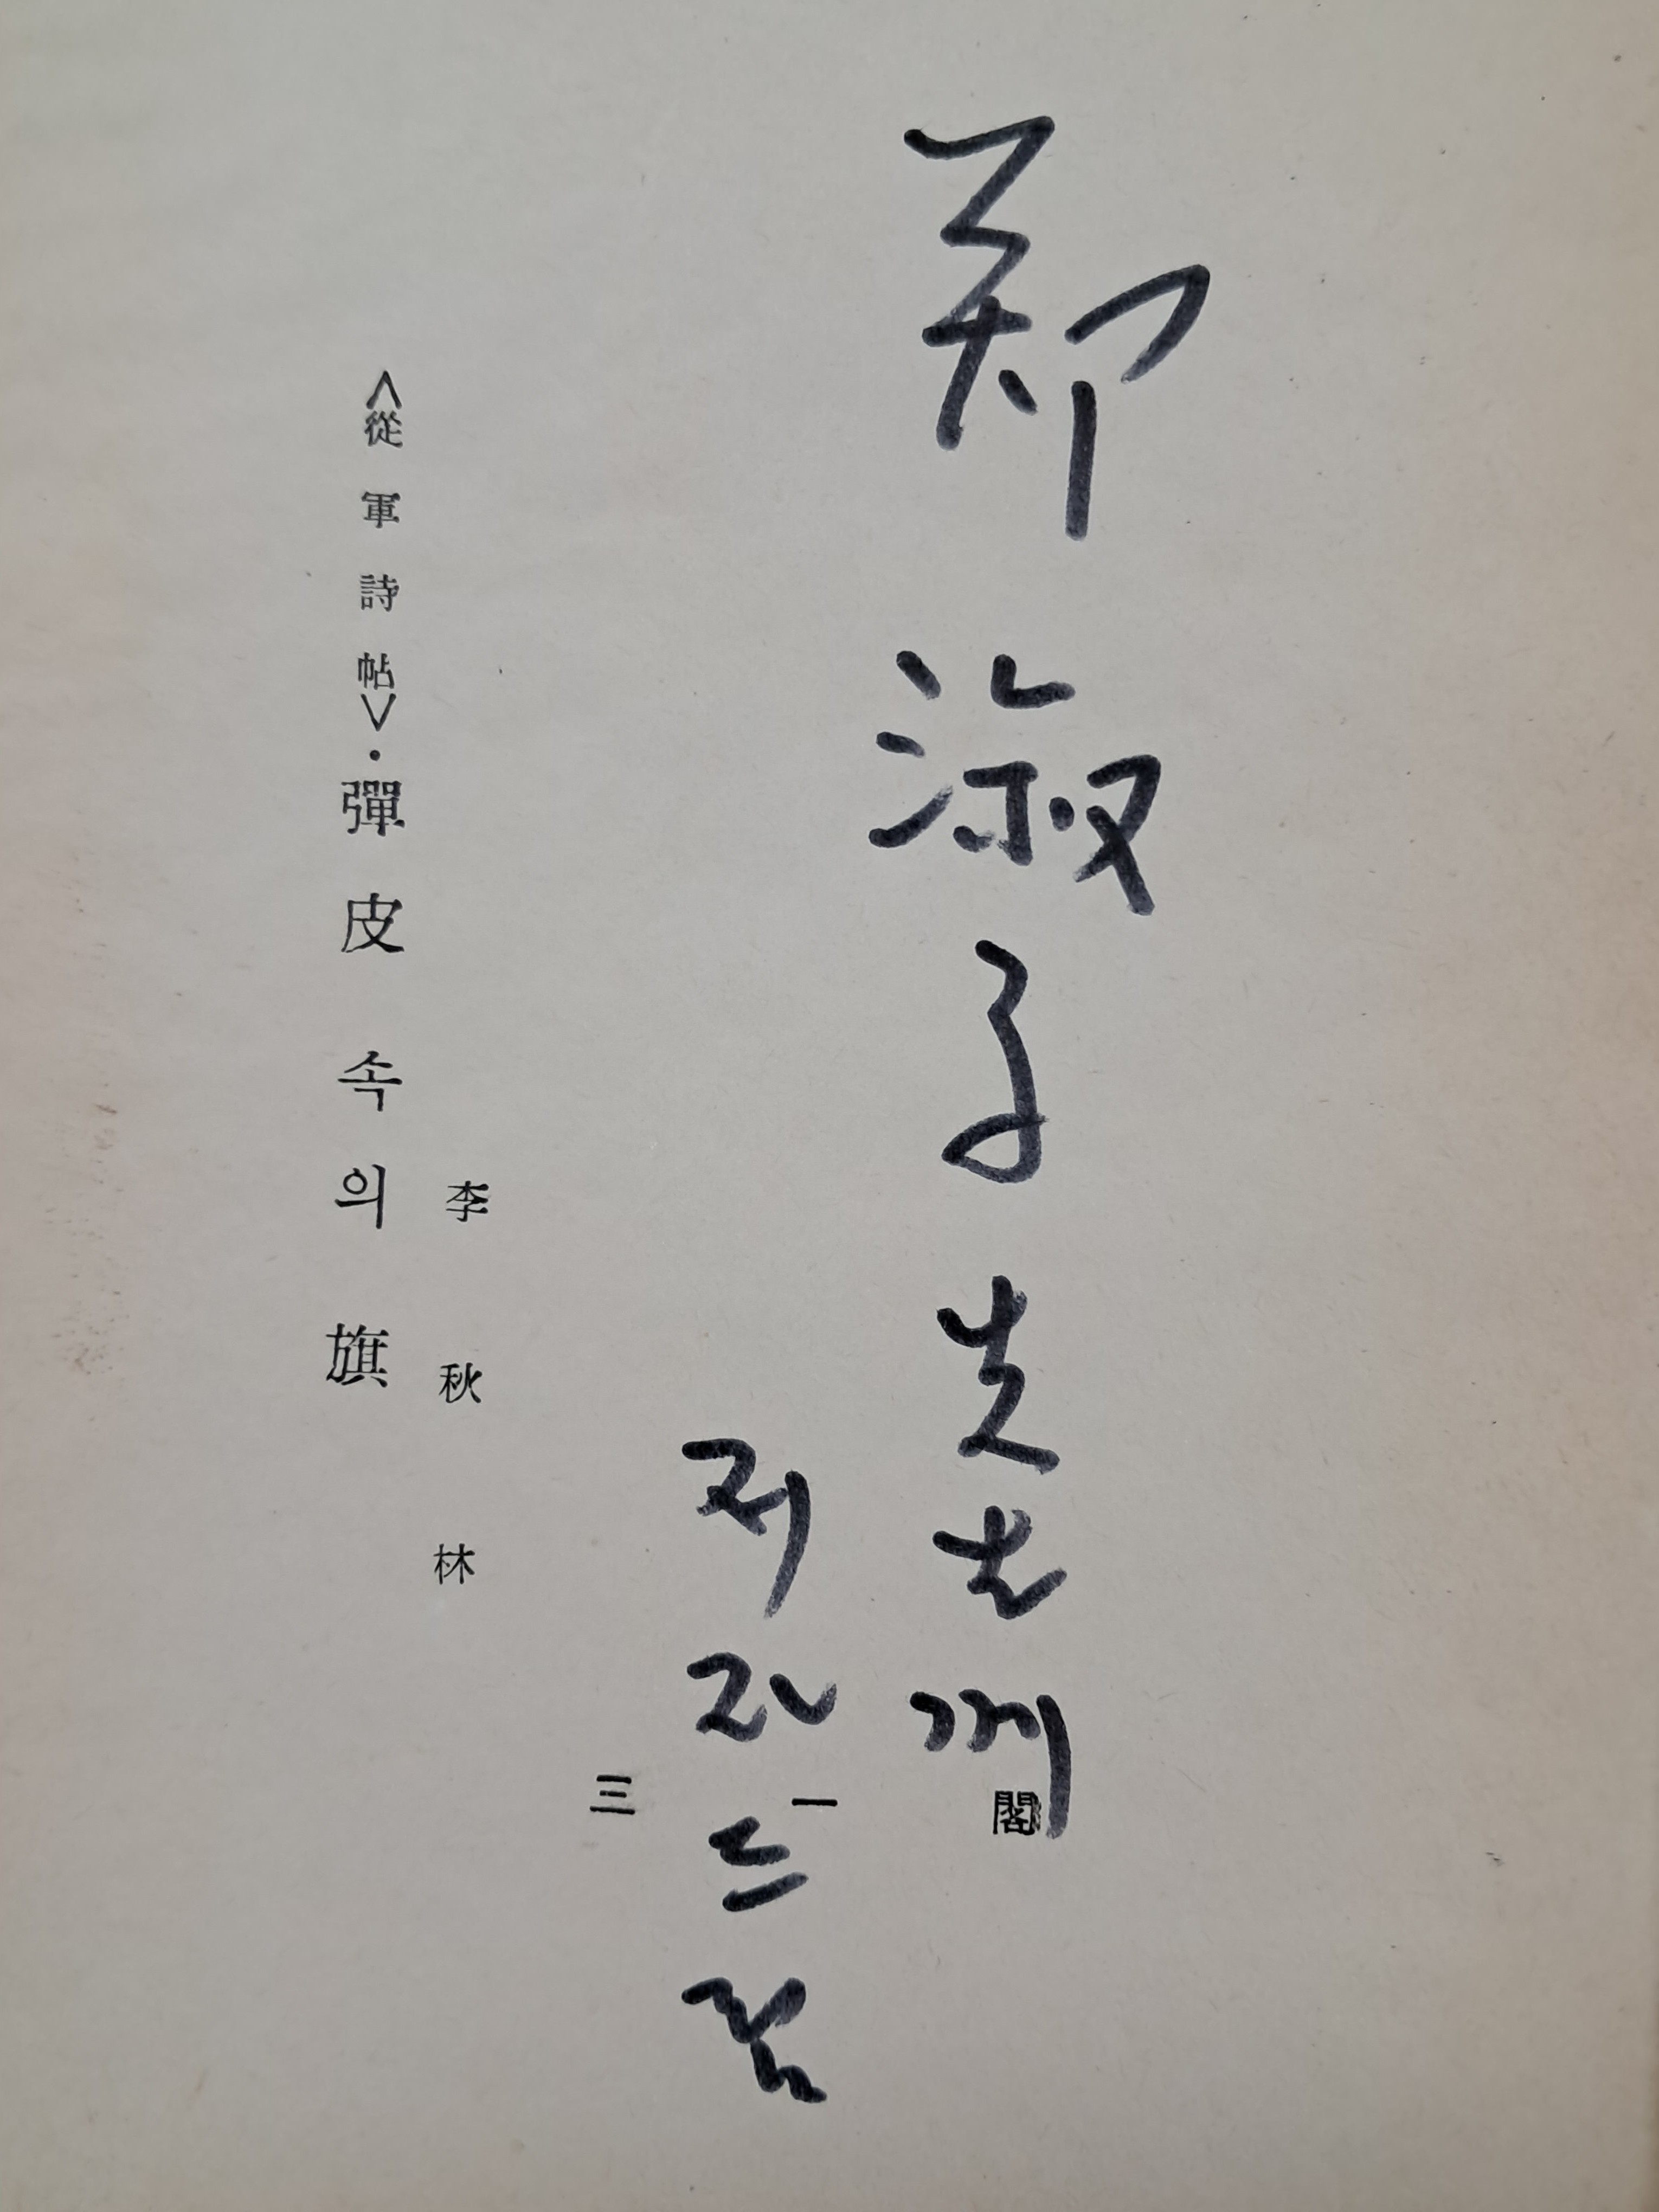 鄭淑子 先生께
저자 드림
<從軍詩帖>·彈皮 속의 旗
李秋林
三一閣